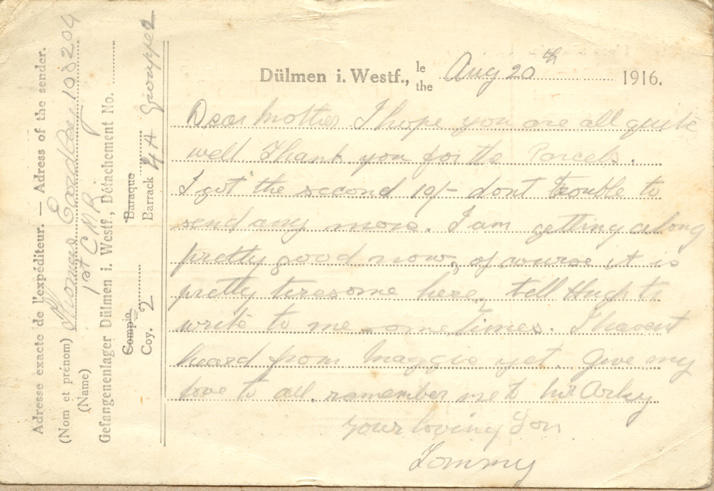 Dülmen i. Westf., le
the Aug 20th 1916.
Dear Mother I hope you are all quite
well Thank you for the Parcels.
I got the second 10/- dont trouble to
send any more. I am getting along
pretty good now, of course it is
pretty tiresome here, tell Hugh to
write to me sometimes. I havent
heard from Maggie yet. Give my
love to all. remember me to
your loving Son
Tommy
Adresse exacte de l'expéditeur. — Adress of the sender.
(Nom et prénom) Thomas 108204
(Name) 1st C.M.R.
Gefangenenlager Dülmen i. Westf., Détachement No.
Compie Baraque
Coy. 2 Barrack 4A Gruppe 2